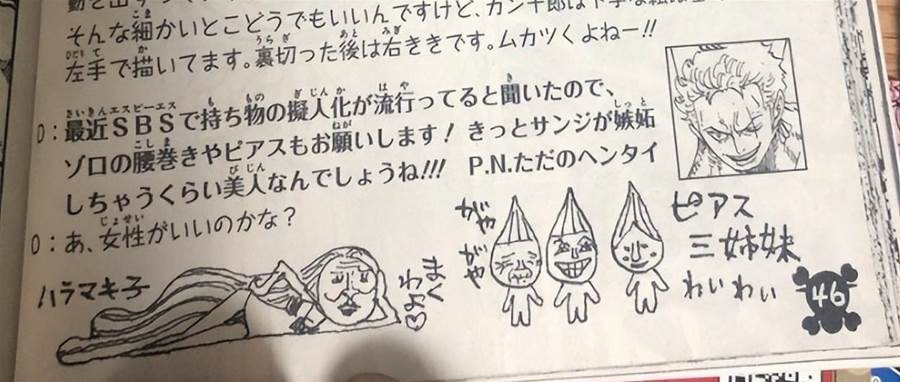 そんな細かいとこどうでもいいんですけど、カン十郎は下手な絵は
左手で描いてます。裏切った後は右ききです。ムカツくよねー!!
D:最近SBSで持ち物の擬人化が流行ってると聞いたので、
ゾロの腰巻きやピアスもお願いします! きっとサンジが嫉妬
しちゃうくらい美人なんでしょうね!!! P.N.ただのヘンタイ
O:あ、女性がいいのかな?
ハラマキ子
まくわよ♡
がやがや
ピアス
三姉妹
わいわい
46